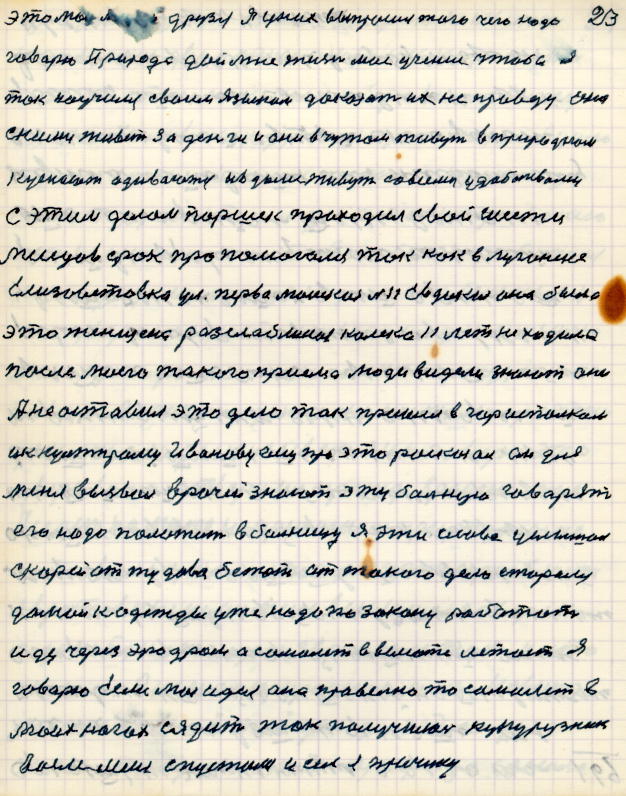 23
это мои друзя Я у них выпросил того чего надо
говорю Природа дай мне жизн мое учение чтобы я
так научился своим языком доказат их не правду они
с ними живет за денги и они в чужом живут в природном
кушают одиваются и в доме живут совсеми удобствами
С этим делом Паршек проходил свой шести
месецов срок про помогала так как в луганске
Елизоветовка ул. перва майская №11 Евдокия она была
это женщена разслабленая калека 11 лет не ходила
после моего такого приема люди видели знают они
Я не оставил это дело так пришел в горисполком
Иванову ему про это расказал он для
меня вызвал врачей знают эту болную говарят
его надо положит в болницу Я эти слова услышал
скорей от тудова бежат от такого дела старому
домой к одежды уже надо по закону работат
иду через эродром а самолет в высоте летает Я
говорю Если моя идея она правелно то самолет в
моих ногах сядит так получилос кукурузник
возле мене спустился и сел я причину